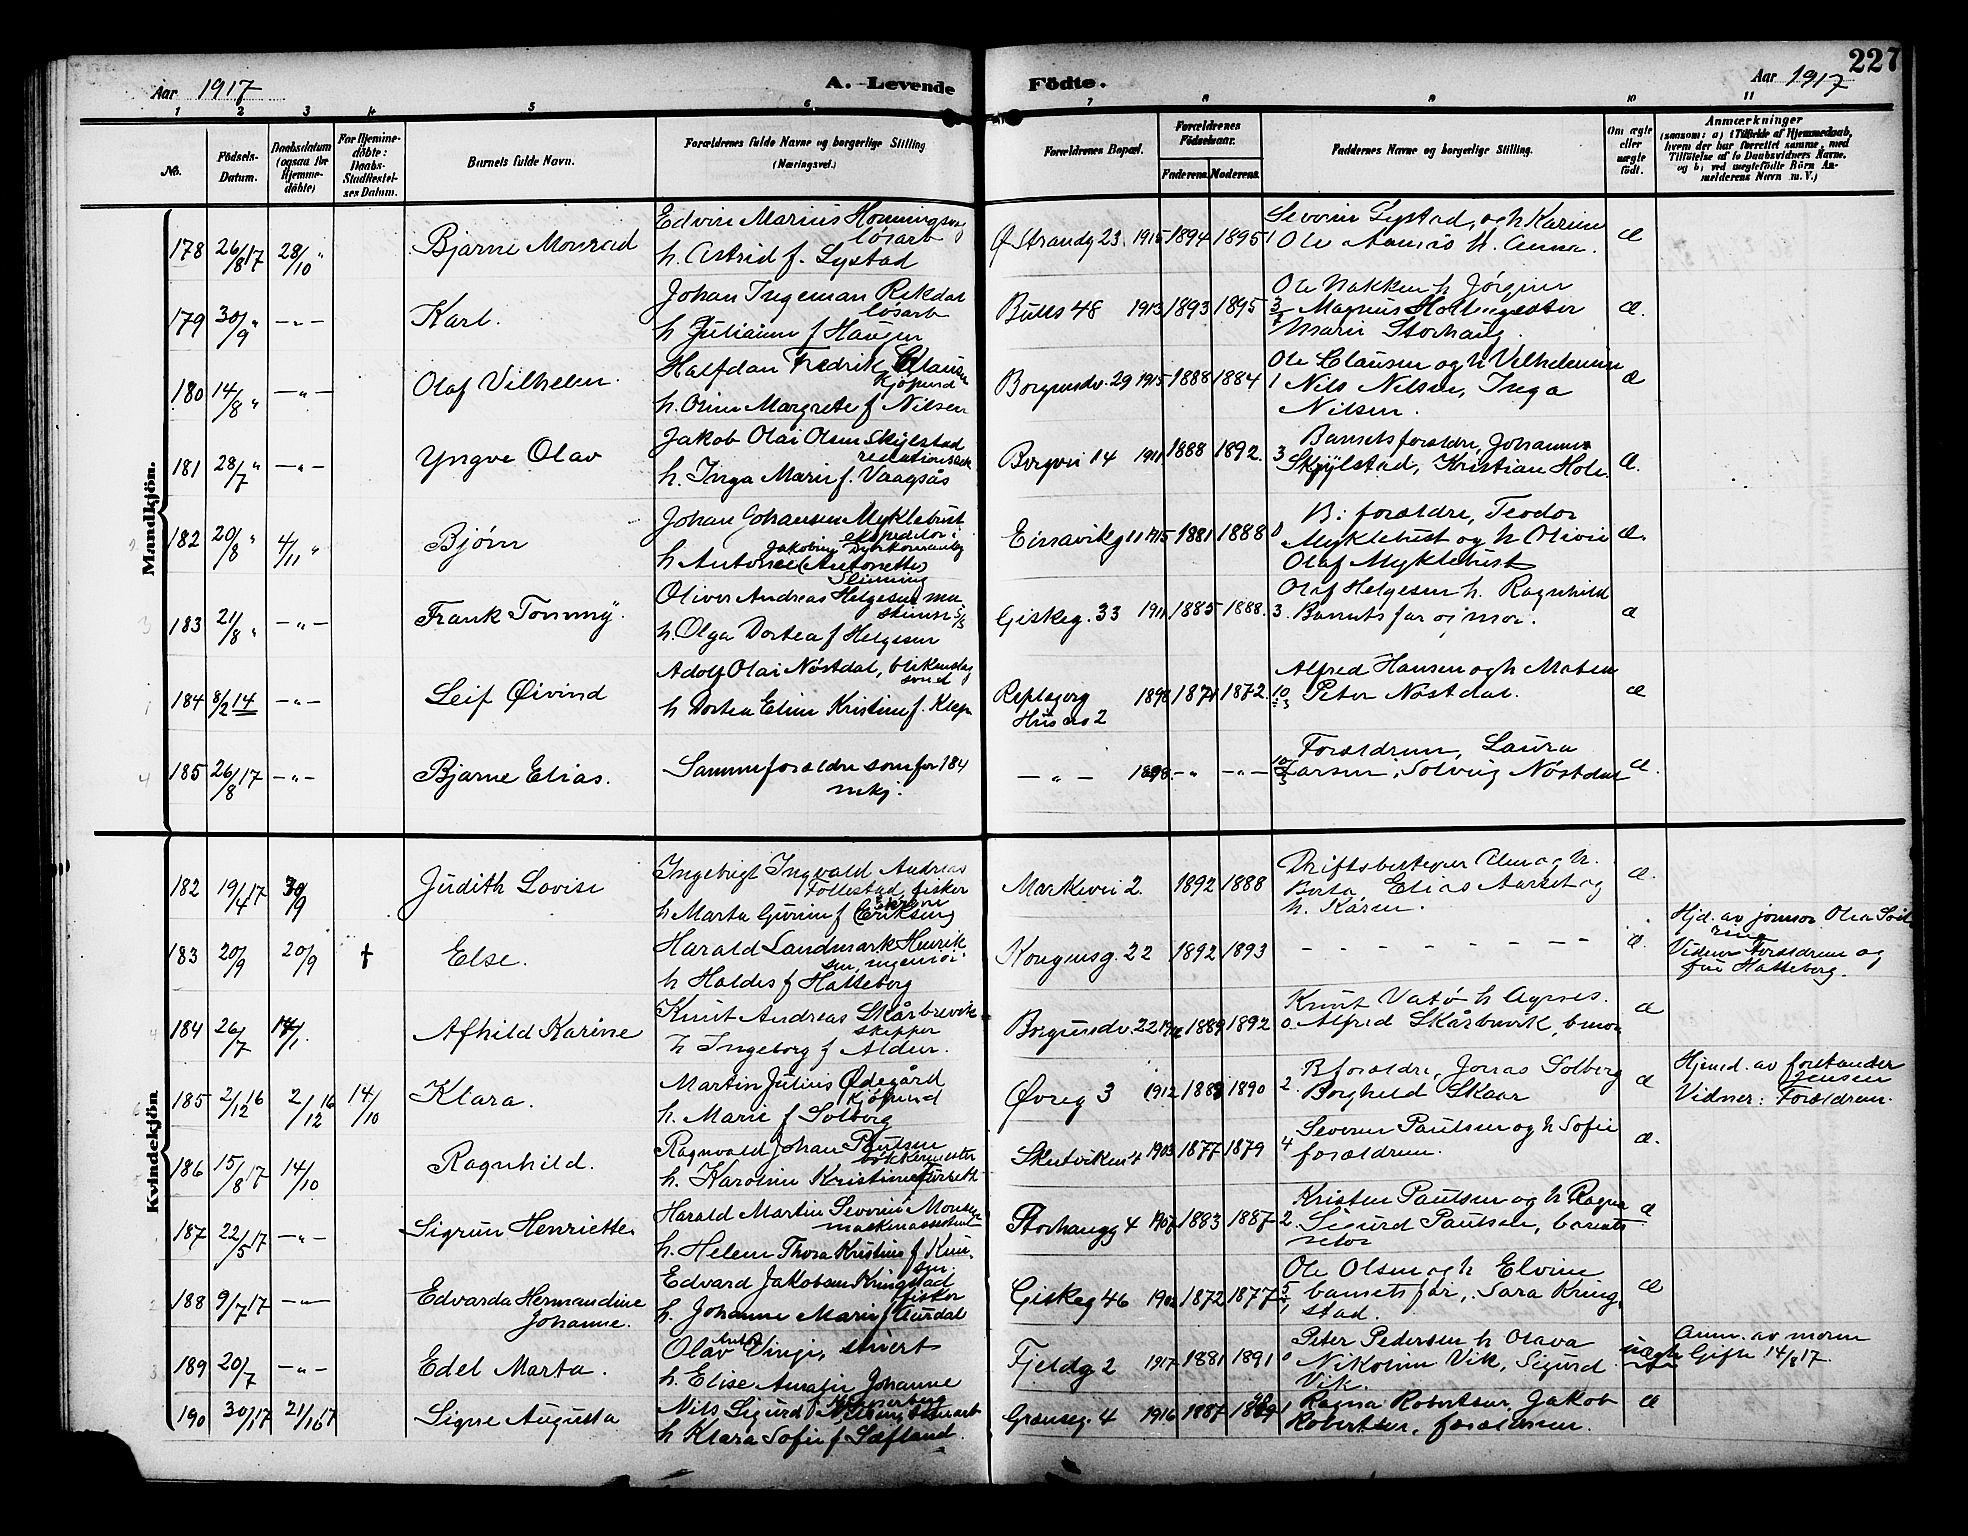 227
Aar 1917
A. Levende Födte.
Aar 1917
1 2 3 4 5 6 7 8 9 10 11
No.
Födsels-Datum.
Daabsdatum (ogsaa for Hjemme-döbte)
For Hjemme-döbte: Daabs-Stadfestel-ses Datum.
Barnets fulde Navn.
Forældrenes fulde Navne og borgerlige Stilling (Næringsvei.)
Forældrenes Bopæl.
Forældrenes Födselsaar.
Faderens. Moderens.
Faddernes Navne og borgerlige Stilling.
Om ægte eller uægte födt.
Anmærkninger
(saasom: a) i Tilfælde af Hjemmedaab, hvem der har forrettet samme, med Tilföielse af to Daabsvidners Navne. og b) ved uægtefödte Börn An-melderens Navn m. V.)
Mandkjön.
178 26/8 17 28/10 " Bjarne Monrad
Edvin Marius Honningsvåg
løsarb
h. Astrid f. Lystad
Ø Strandg 23. 1915 1894 1895 1
Severin Lystad, og h Karine
Ole Aamås h. Anna. Æ
179 30/9 " — " — Karl.
Johan Ingeman Rekdal
løsarb
h Julianne f Haugen
Bulls 48 1913 1893 1895
Ole Nakken h Jørgine
Magnus
Marie Storhaug Æ.
180 14/8 " — " — Olaf Vilhelm.
Halfdan Fredrik Clausen
kjøpmd
h. Oline Margrete f Nilsen
Borgundv. 29 1915 1888 1884 1
Ole Clausen og h Vilhelmine
Nils Nilsen, Inga
Nilsen. Æ
181 28/7 " — " — Yngve Olav
Jakob Olai Olsen Skylstad
h. Inga Marie f. Vaagsås
Borgvei 14 1911 1888 1892. 3
Barnets forældre, Johannes
Skjylstad, Kristian Hole. Æ.
182 20/8 " 4/11 " Bjørn
Johan Johansen Myklebust
ekspeditør i
Jakobine
h Antonee (Antonette)
Slinning
Eirsavikeg 11 1915 1881 1888 0
B: forældre, Teodor
Myklebust og h Olivie
Olaf Myklebust Æ.
183 21/8 " — " — Frank Tommy.
Oliver Andreas Helgesen ma
skinm. s/s
h. Olga Dortea f Helgesen
Giskeg. 33 1911 1885 1888. 3
Olaf Helgesen h. Ragnhild
Barnets far og mor. Æ
184 8/2 14 — " — Leif Øivind
Adolf Olai Nøstdal, blikenslag
svend
h Dortea Eline Kristine f. Klepp
Replagerg
Husers 2 1898 1871 1872. 10/3
Alfred Hansen og h Maten
Peter Nøstdal. Æ
185 26/8 17 — " — Bjarne Elias.
Samme forældre som for 184
mkj.
— " — 1898 — " — — " — 10/3
Forældrene, Laura
Larsen, Solveig Nøstdal Æ.
Kvindekjön
182 19/4 17 30/9 Judith Lovise
Ingebrigt Ingvald Andreas
Follestad, fisker
h Marta Gurine f (Eriksen)
Markevei 2. 1892 1888
Driftsbestyrer og h.
Berta, Elias Aarset og
h. Karen. Æ.
183 20/9 20/9 † Else.
Harald Landmark Henrik
sen, ingeniør
h Haldis f Hatteborg
Kongensg. 22 1892 1893
– – – – – – – – Æ.
Hjd. av jormor Olea
Vidner Forældrene og
fru Hatteborg.
184 26/7 14/1. Afhild Karine
Knut Andreas Skårbrevik
skipper
h Ingeborg f Alden.
Borgundv. 22 1889 1892 0
Knut Vatø h Agnes.
Alfred Skårbrevik, Æ
185 2/12 16 2/12 16 14/10 Klara.
Martin Julius Ødegård
kjøpmd
h. Marie f Solberg
Øvreg 3 1912 1888 1890 2
B forældre, Jonas Solberg
Borghild Skaar Æ
Hjemd. av forstander
Jensen
Vidner: Forældrene.
186 15/8 17 14/10 Ragnhild.
Ragnvald Johan Paulsen
bøkkermester
h. Karoline Kristine f
Skutviken 4 1903 1877 1879 4
Severin Paulsen og h Sofie
forældrene. Æ.
187 22/5 17 — " — Sigrun Henriette
Harald Martin Severin Monsen
h. Helene Thora Kristine f Knu-
sen.
Storhaugg 4 1907 1883 1887 2
Kristen Paulsen og h Ragna
Sigurd Paulsen, barnets
Æ
188 9/7 17 — " — Edvarda Hermandine
Johanne.
Edvard Jakobsen Kringstad
fisker
h. Johanne Marie f Aurdal
Giskeg 46 1902 1872 1877 5/1
Ole Olsen og h Elvine
barnets far, Sara Kring
stad. Æ
189 20/7 — " — Edel Marta.
Olav Anton Vinje, stuert
h. Elise Amalie Johanne
Fjeldg 2 1917 1881 1891 0
Peter Pedersen h Olava
Nikoline Vik, Sigurd
Vik. uægte
Anm. av moren
Gifte 14/8 17.
190 30/ 17 21/ 17 Signe Augusta
Nils Sigurd
h Klara Sofie f Sæfland.
Grenseg. 4 1916 1887 1
Ragna Robertsen, Jakob
Robertsen, forældrene. Æ